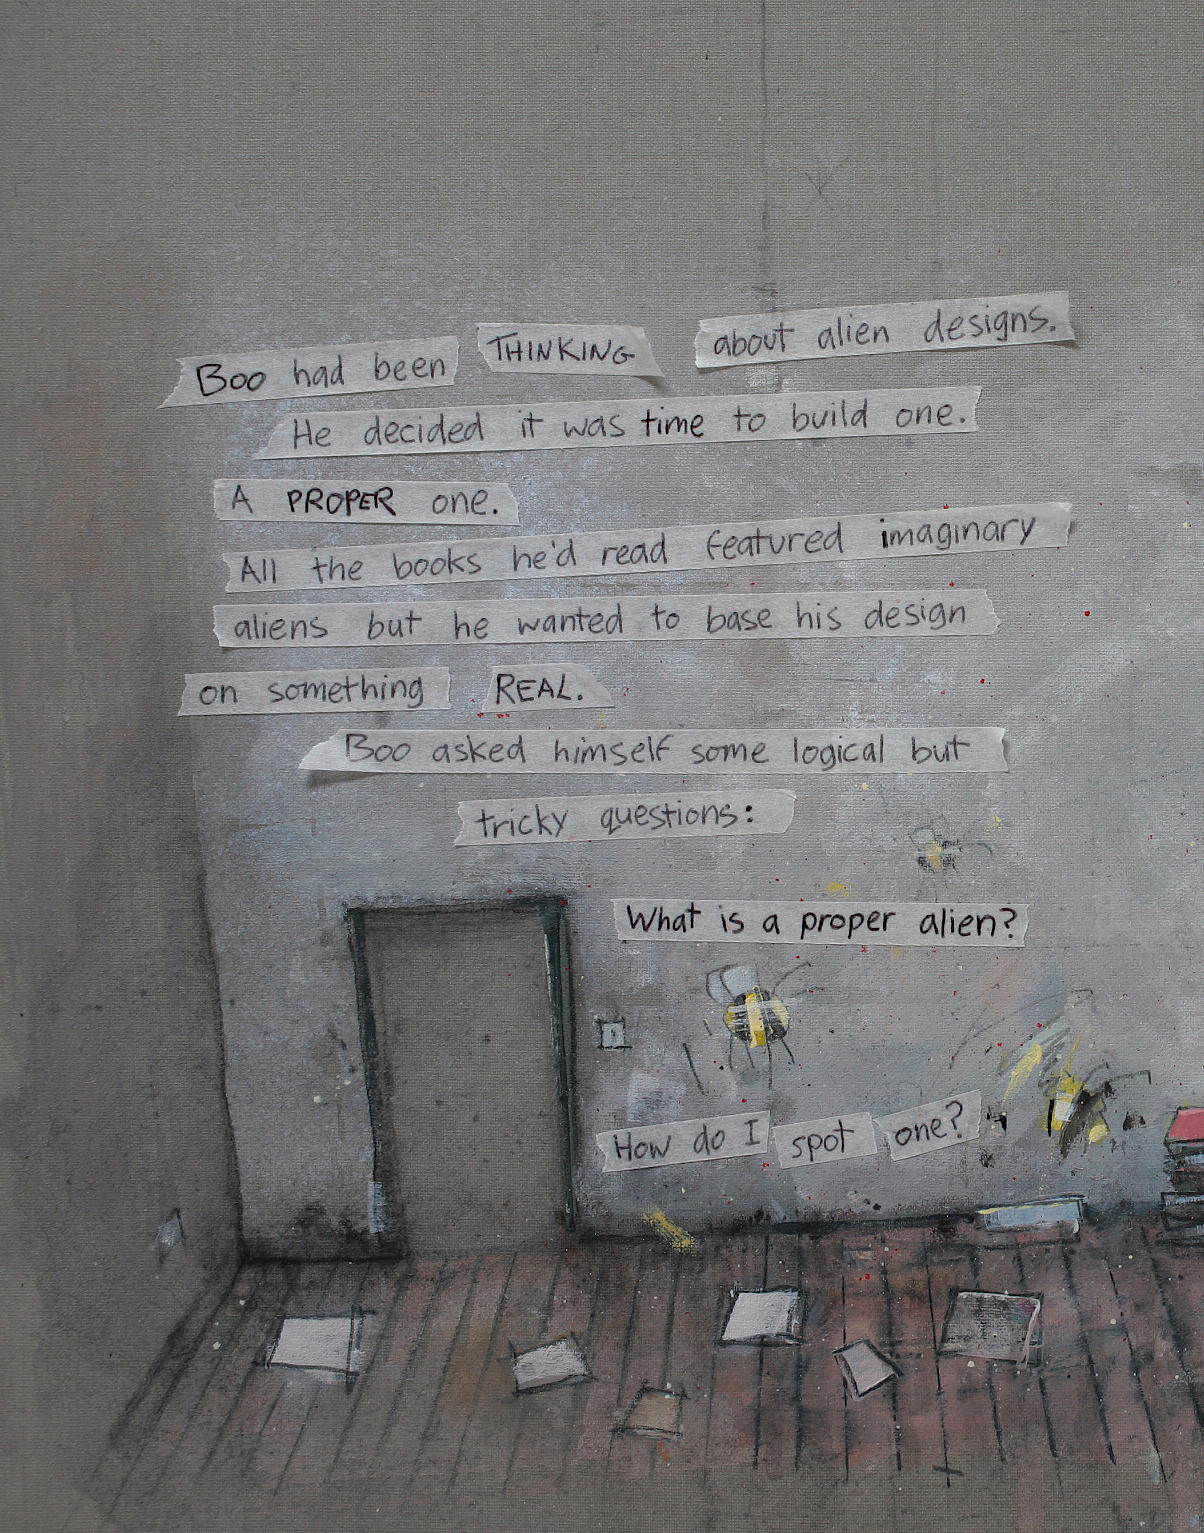 Boo had been THINKING about alien designs.
He decided it was time to build one.
A PROPER one.
All the books he'd read featured imaginary
aliens but he wanted to base his design
on something REAL.
Boo asked himself some logical but
tricky questions:
What is a proper alien?
How do I spot one?